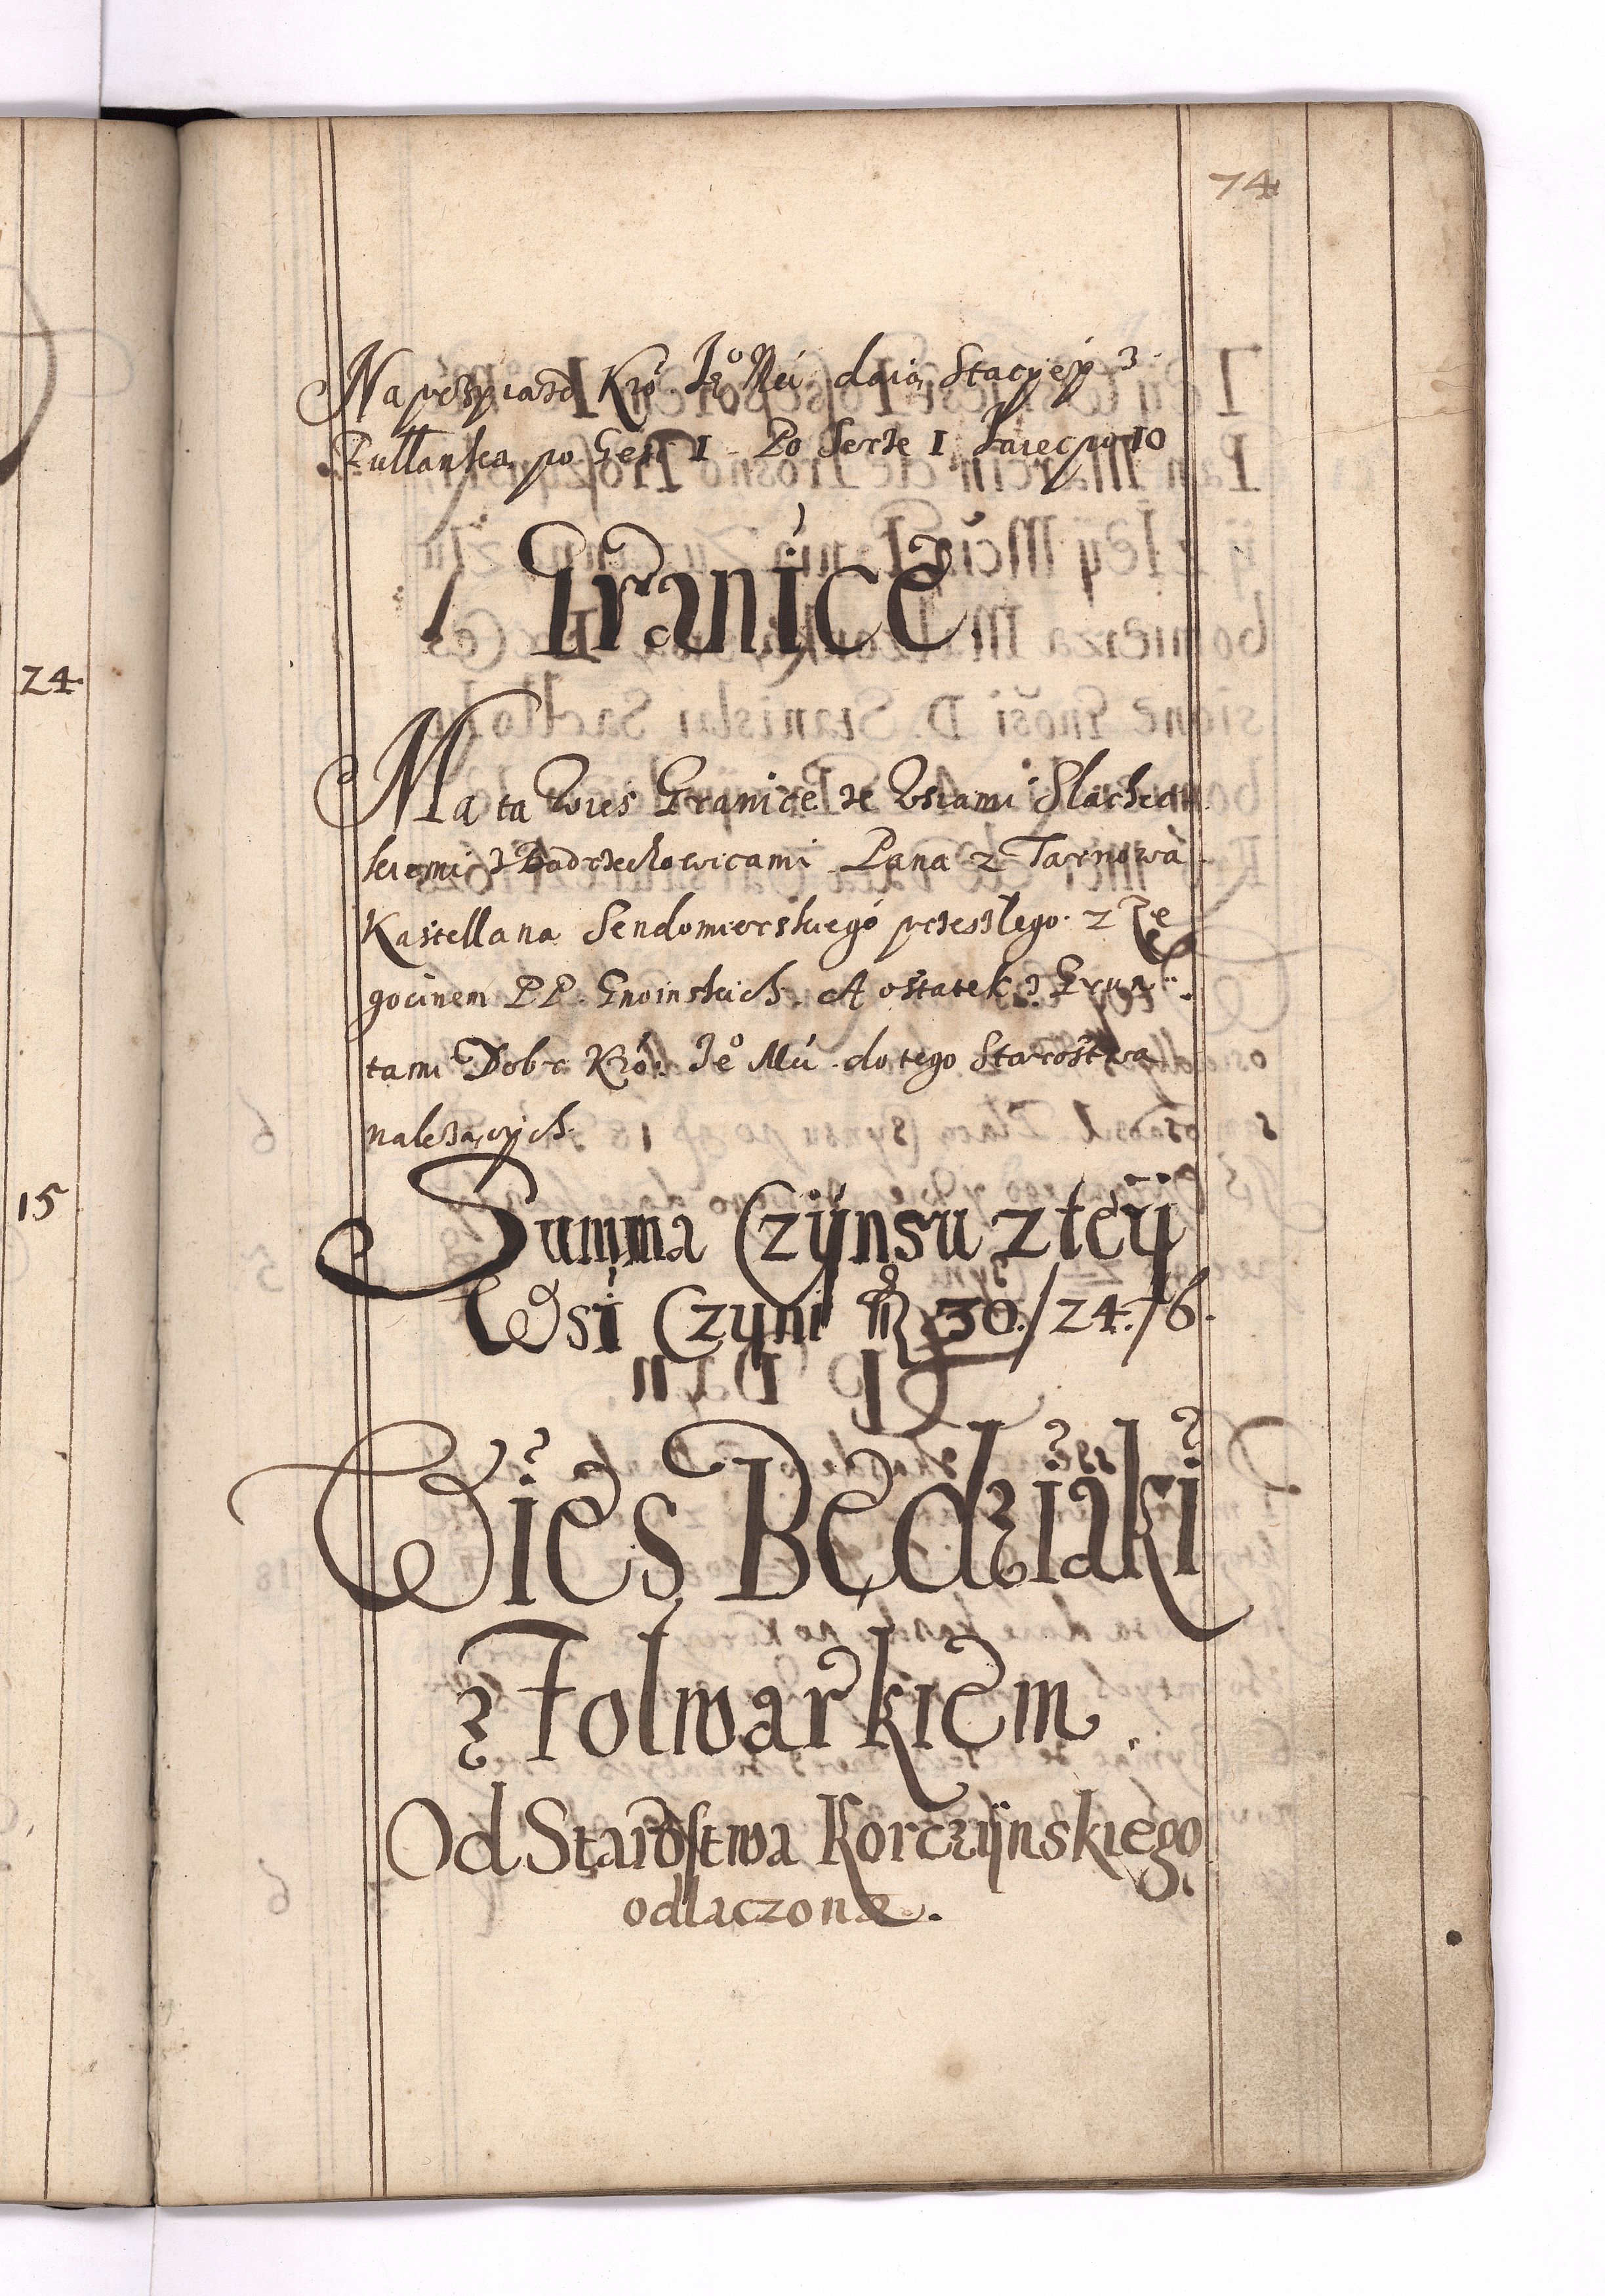 74
Na przyiazd Kro. Je⁰ Mći daią Stacyę z
Pułłanka po Gęsi 1 Po Serze 1 Jaiec po 10
Granice.
Ma ta Wies Granice ze Wsiami Slachec
kiemi z Badrzechowicami Pana z Tarnowa
Kastellana Sendomierskiego przeszlego. z Ze
gocinem PP. Gnoinskich. A ostatek z Grun
tami Dobr Kró. Je⁰ Mći do tego Starostwa
należących.
Summa Czÿnsu z teÿ
Wsi Czyni 30./24./6.
Wies Będziaki
z Folwarkiem
Od Starostwa Korczÿnskiego
odlaczone.
24.
15